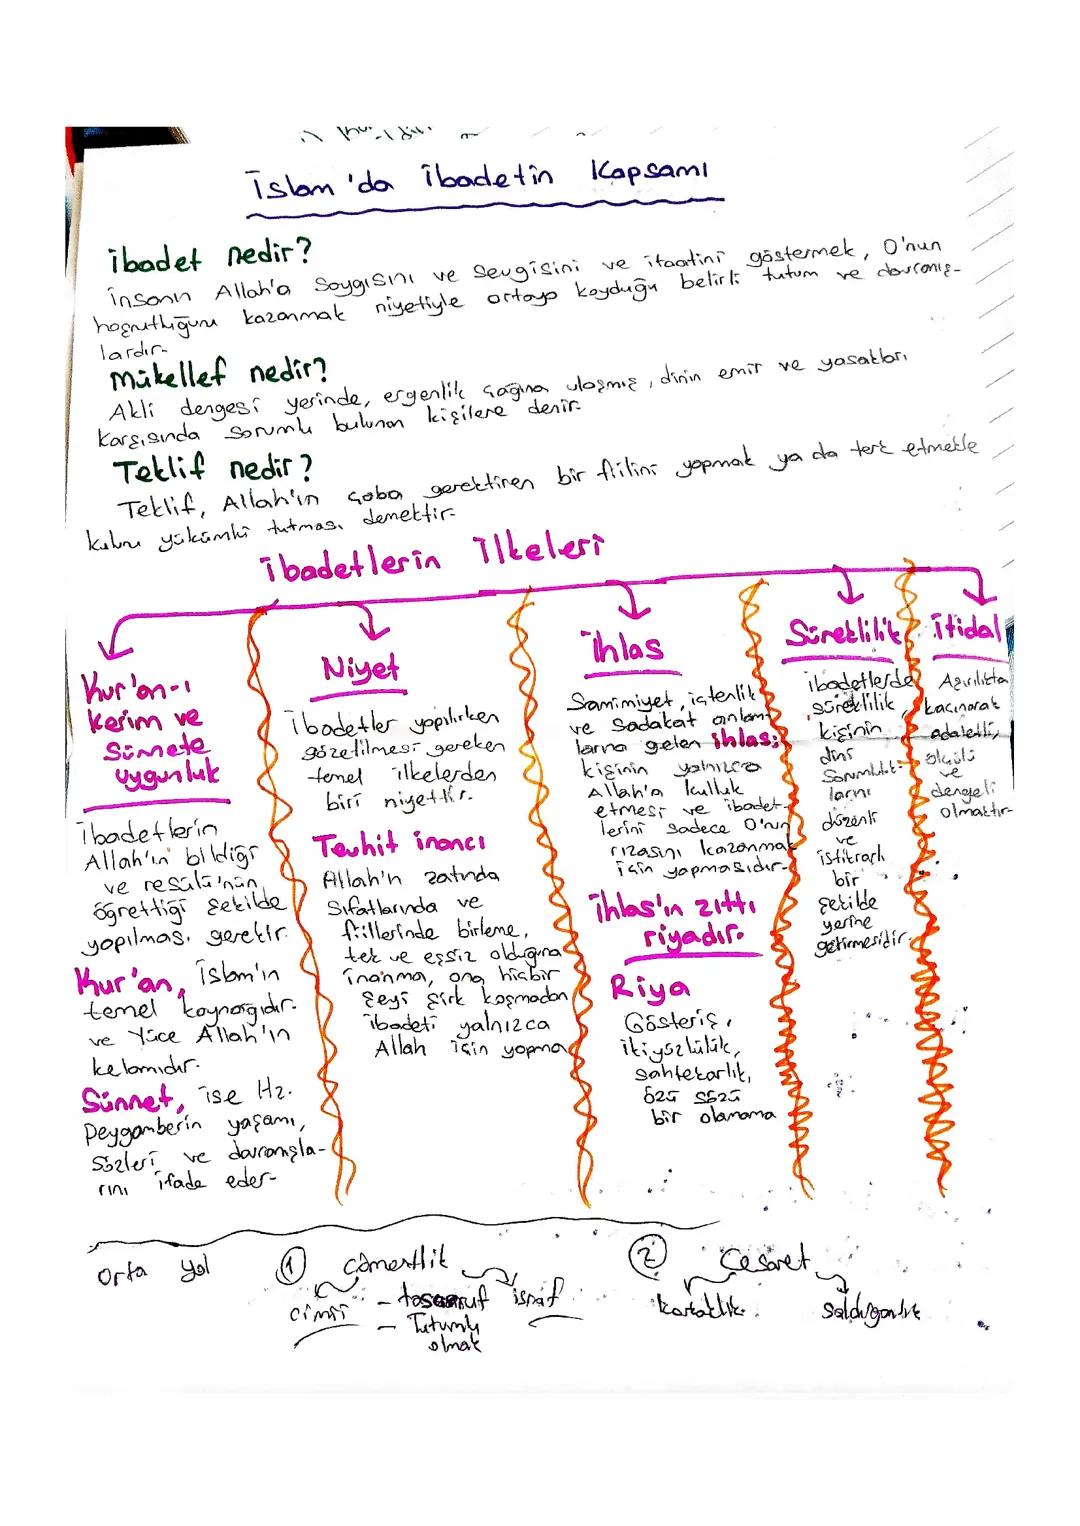 İslam'da İbadetin Kapsamı
İbadet nedir?
İnsanın Allah'a Saygısını ve Sevgisini ve itaatini göstermek, O'nun
hoşnutluğunu kazanmak niyetiyle ortaya koyduğu belirli tutum ve davranış-
lardır.
Mükellef nedir?
Akli dengesi yerinde, ergenlik çağına ulaşmış, dinin emir ve yasakları
karşısında sorumlu bulunan kişilere denir.
Teklif nedir?
Teklif, Allah'ın çaba gerektiren bir fiilini yapmak ya da terk etmekle
kulunu yükümlü tutması demektir.
İbadetlerin İlkeleri
Kur'an-ı
Kerim ve
Sünnete
Uygunluk
İbadetlerin
Allah'ın bildiği
ve resülü'nün
öğrettiği şekilde
yapılması gerekir.
Kur'an, İslam'ın
temel kaynağıdır.
ve Yüce Allah'ın
kelamıdır.
Sünnet, ise Hz.
Peygamberin yaşamı,
sözleri ve davranışla-
rını ifade eder.
Niyet
İbadetler yapılırken
gözetilmesi gereken
temel ilkelerden
biri niyettir.
Tevhit inancı
Allah'ın zatında
Sıfatlarında ve
fiillerinde birleme,
tek ve eşsiz olduğuna
inanma, ona hiçbir
şeyi şirk koşmadan
ibadeti yalnızca
Allah için yapma
İhlas
Samimiyet, içtenlik
ve Sadakat anlam-
larına gelen ihlas;
kişinin yalnızca
Allah'a kulluk
etmesi ve ibadet-
lerini sadece O'nun
rızasını kazanmak
için yapmasıdır.
İhlas'ın zıttı
riyadır.
Riya
Gösteriş,
ikiyüzlülük,
sahtekarlık,
özü sözü
bir olamama
Süreklilik
ibadetlerde
süreklilik,
kişinin
dini
Sorumluluk-
larını
düzenli
ve
istikrarlı
bir
şekilde
yerine
getirmesidir.
İtidal
Aşırılıkta
kaçınarak
adaletli,
ölçülü
ve
dengeli
olmaktır.
Orta yol
1 cömertlik
cimri
- tasarruf
- Tutumlu
olmak
israf
2 Cesaret
korkaklık
Saldırganlık